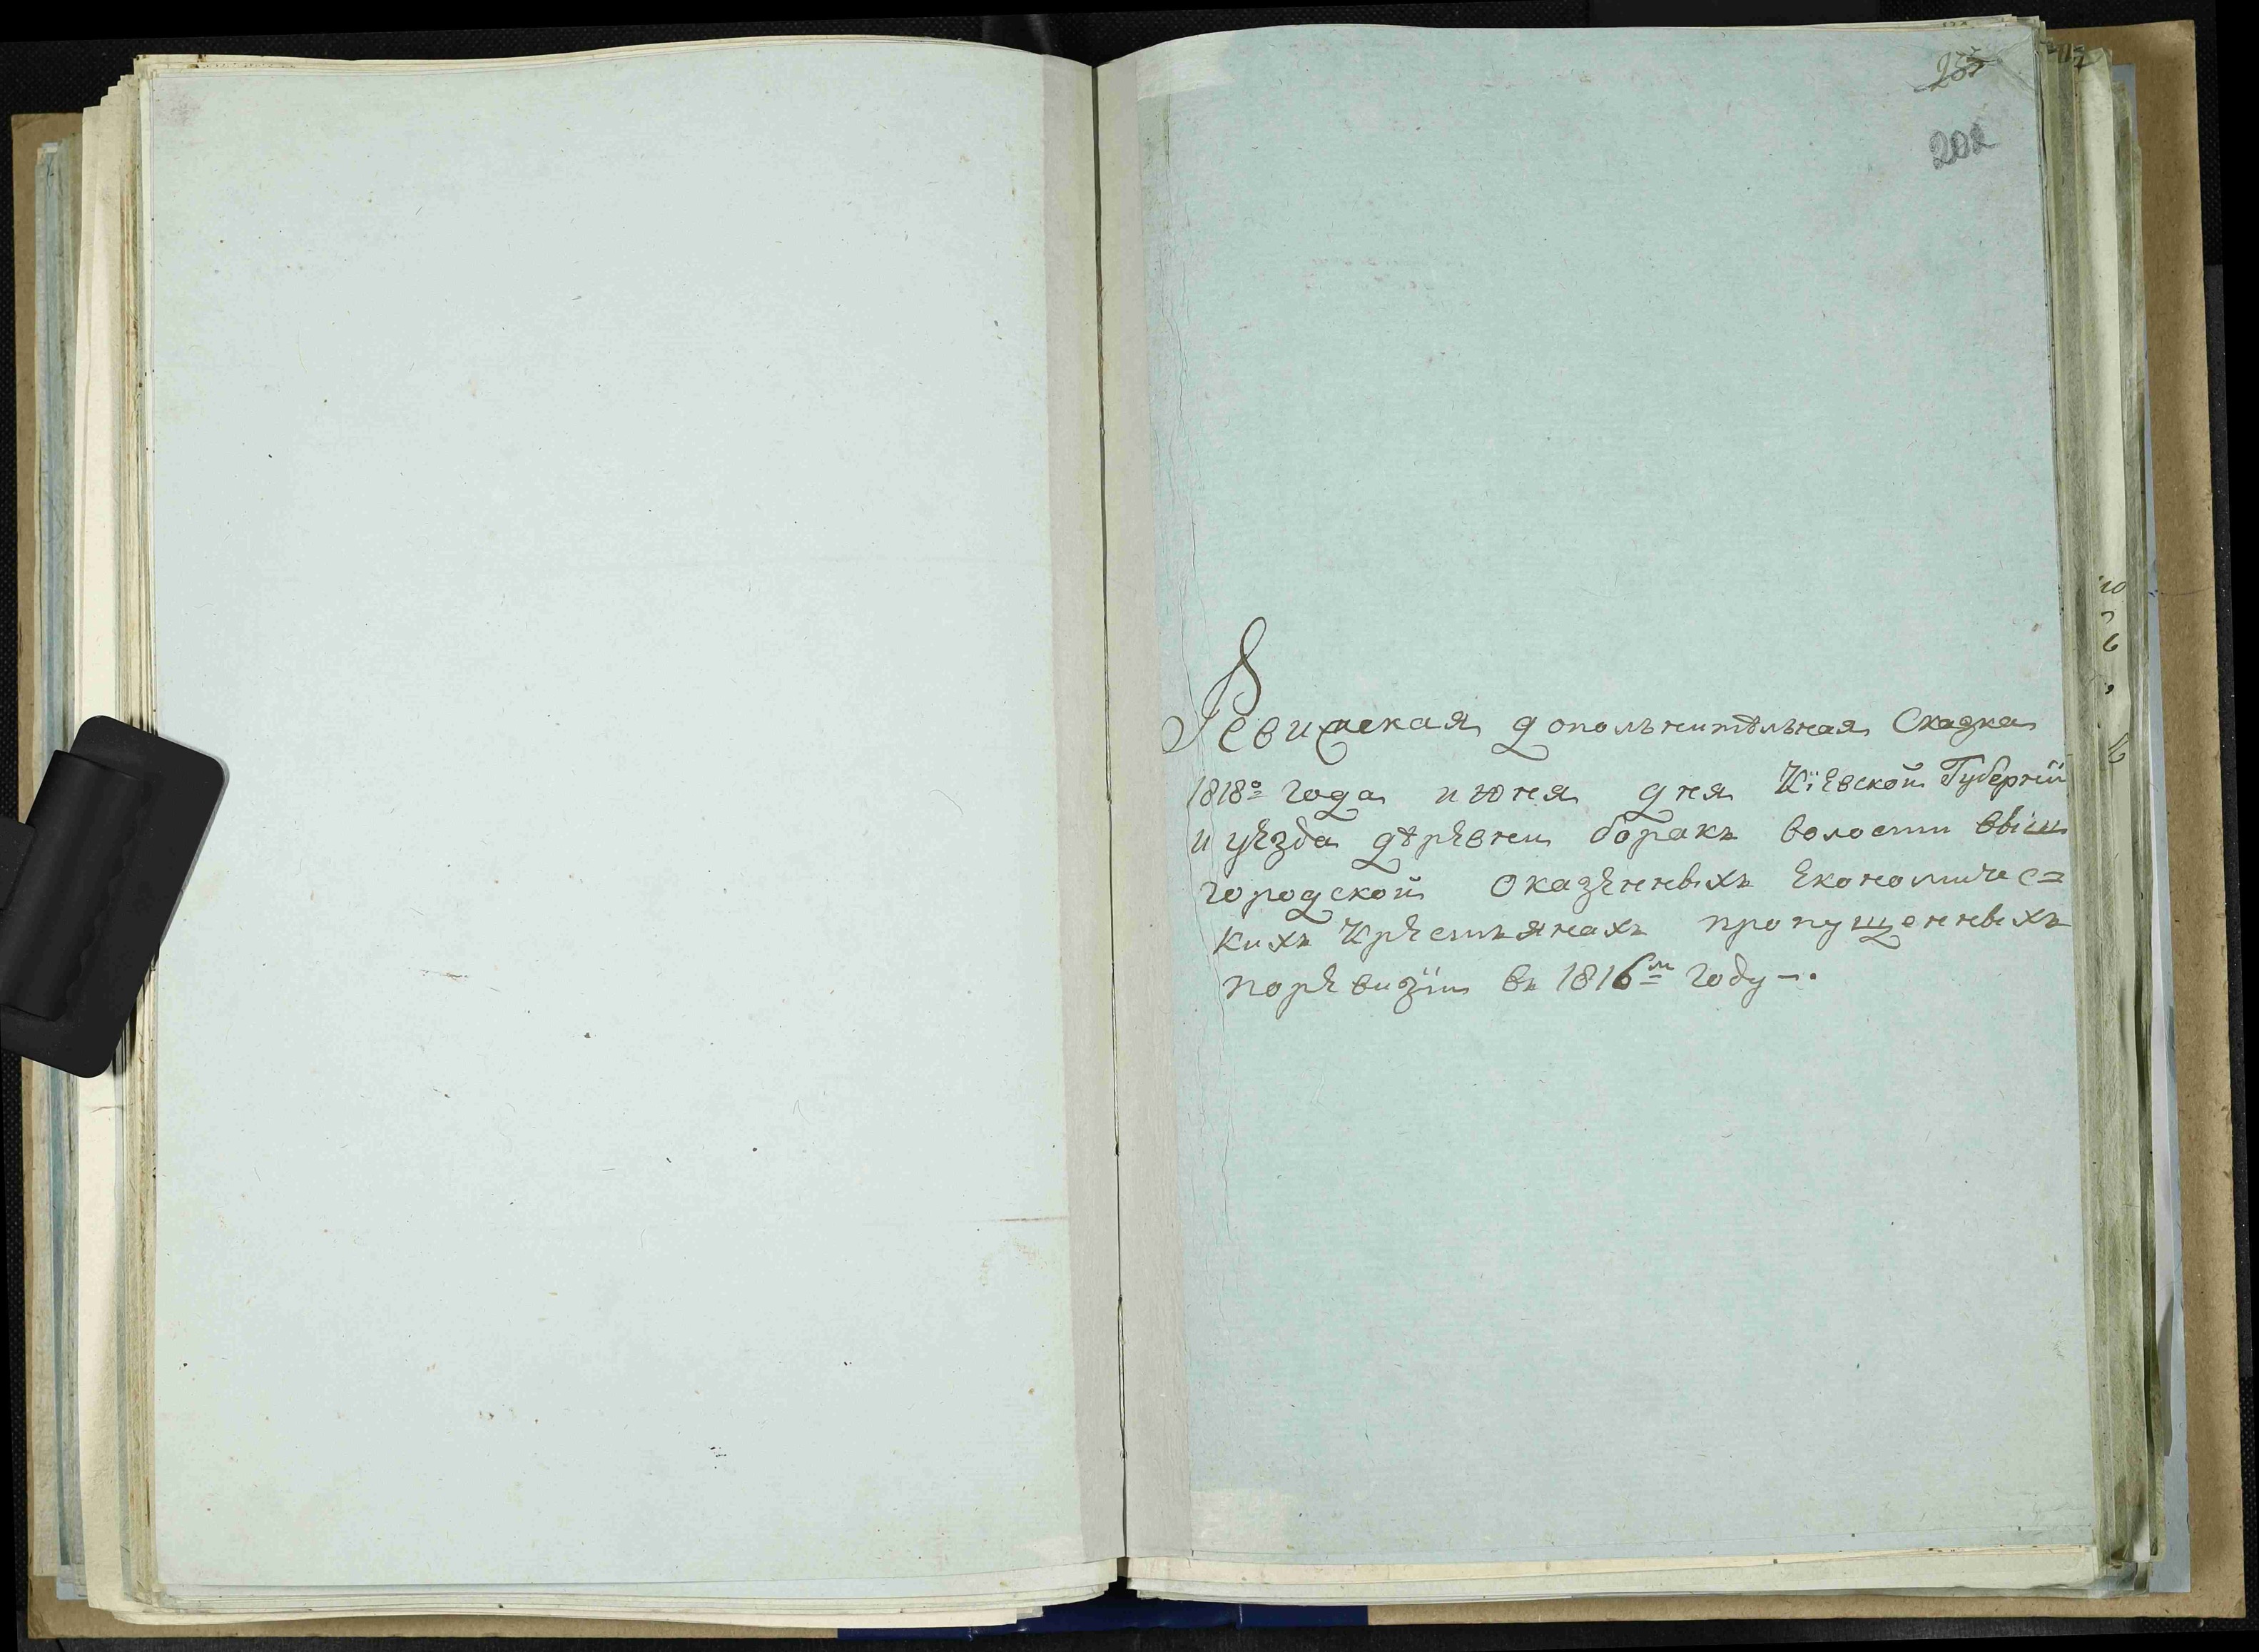 202
Ревиская дополнитѣльная Сказка
1818º года июня дня Кїевской Губернїи
и уезда дѣревни боракъ волости выш
городской Оказенныхъ Економичес=
кихъ Крестьянахъ пропущенныхъ
поревизїи въ 1816м году -.